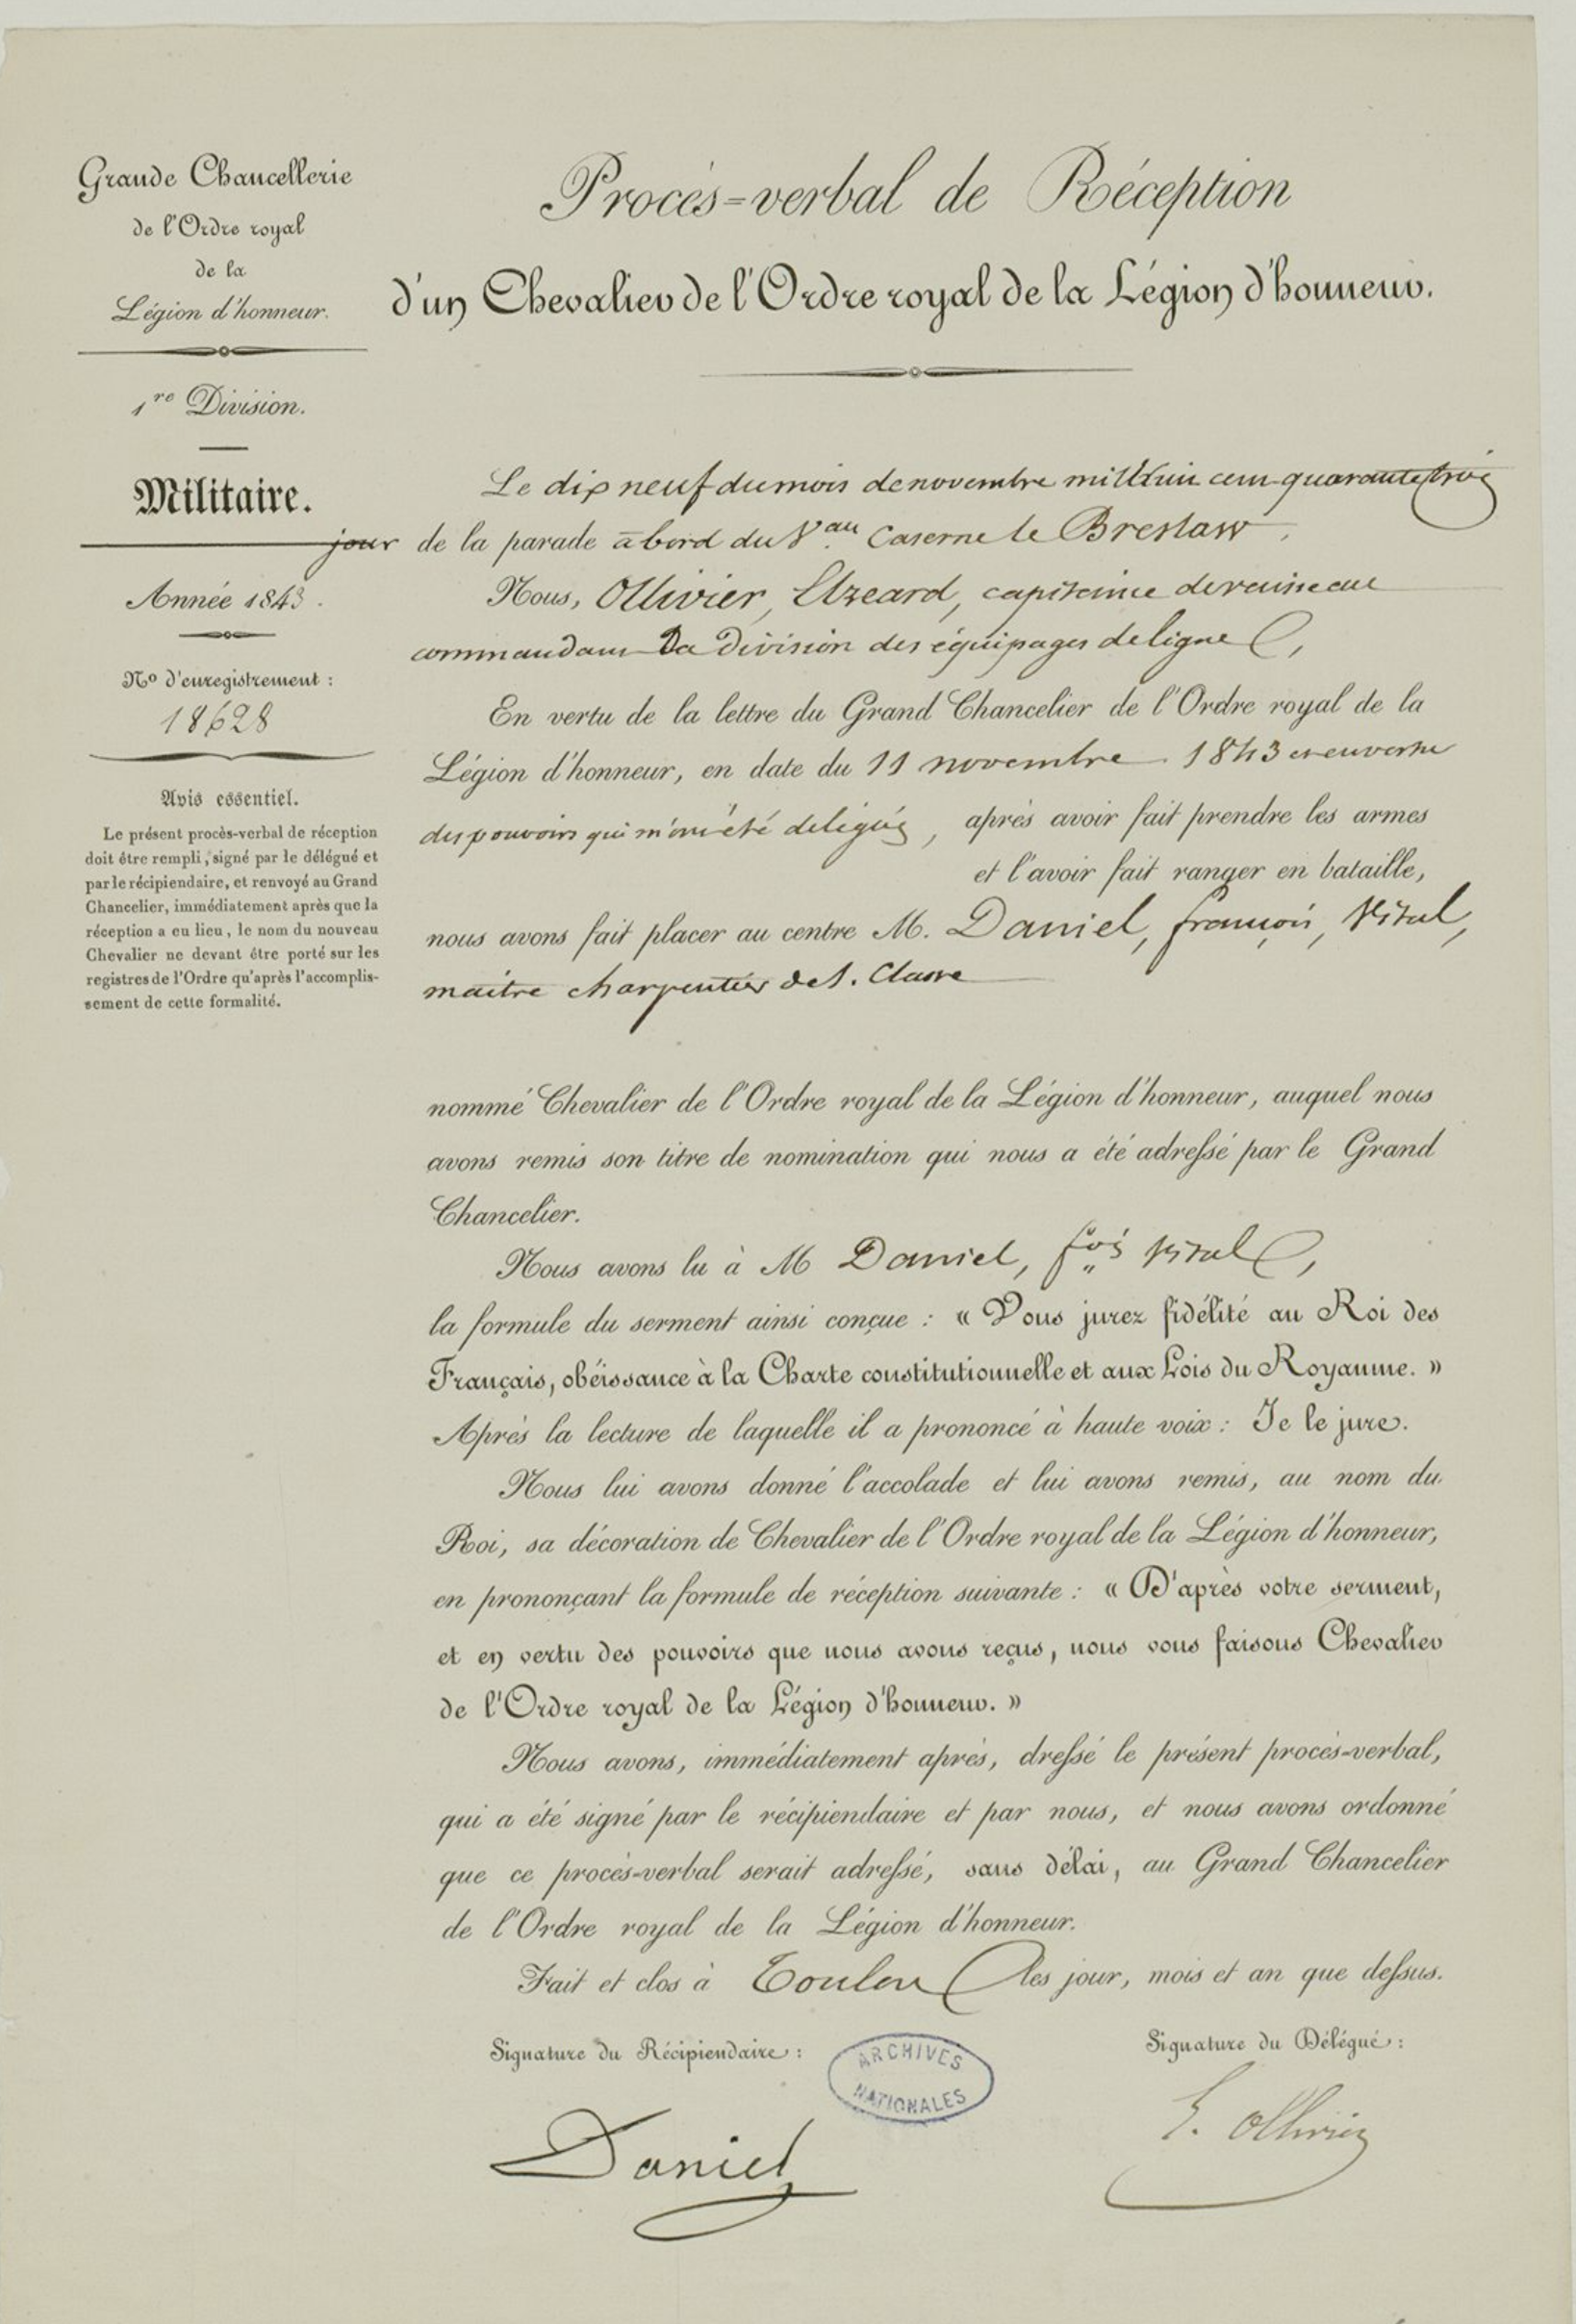 Grande Chancellerie
de l'Ordre royal
de la
Légion d'honneur.
1re Division.
Militaire.
Année 1843.
No d'enregistrement :
18628
Avis essentiel.
Le présent procès-verbal de réception
doit être rempli, signé par le délégué et
par le récipiendaire, et renvoyé au Grand
Chancelier, immédiatement après que la
réception a eu lieu, le nom du nouveau
Chevalier ne devant être porté sur les
registres de l'Ordre qu'après l'accomplis-
sement de cette formalité.
Procès-verbal de Réception
d'un Chevalier de l'Ordre royal de la Légion d'honneur.
Le dix neuf du mois de novembre mil huit cent quarante trois
jour de la parade à bord du Vau Caserne le Breslaw,
Nous, Ollivier, Elzeard, capitaine de vaisseau
commandant la Division des équipages de ligne,
En vertu de la lettre du Grand Chancelier de l'Ordre royal de la
Légion d'honneur, en date du 11 novembre 1843 et en vertu
des pouvoirs qui m'ont été délégués, après avoir fait prendre les armes
et l'avoir fait ranger en bataille,
nous avons fait placer au centre M. Daniel, françois, Vital,
maître charpentier de 1. Classe
nommé Chevalier de l'Ordre royal de la Légion d'honneur, auquel nous
avons remis son titre de nomination qui nous a été adressé par le Grand
Chancelier.
Nous avons lu à M Daniel, fois Vital,
la formule du serment ainsi conçue : « Vous jurez fidélité au Roi des
Français, obéissance à la Charte constitutionnelle et aux Lois du Royaume. »
Après la lecture de laquelle il a prononcé à haute voix : Je le jure.
Nous lui avons donné l'accolade et lui avons remis, au nom du
Roi, sa décoration de Chevalier de l'Ordre royal de la Légion d'honneur,
en prononçant la formule de réception suivante : « D'après votre serment,
et en vertu des pouvoirs que nous avons reçus, nous vous faisons Chevalier
de l'Ordre royal de la Légion d'honneur. »
Nous avons, immédiatement après, dressé le présent procès-verbal,
qui a été signé par le récipiendaire et par nous, et nous avons ordonné
que ce procès-verbal serait adressé, sans délai, au Grand Chancelier
de l'Ordre royal de la Légion d'honneur.
Fait et clos à Toulon les jour, mois et an que dessus.
Signature du Récipiendaire :
Signature du Délégué :
ARCHIVES
NATIONALES
Daniel
E. Ollivier